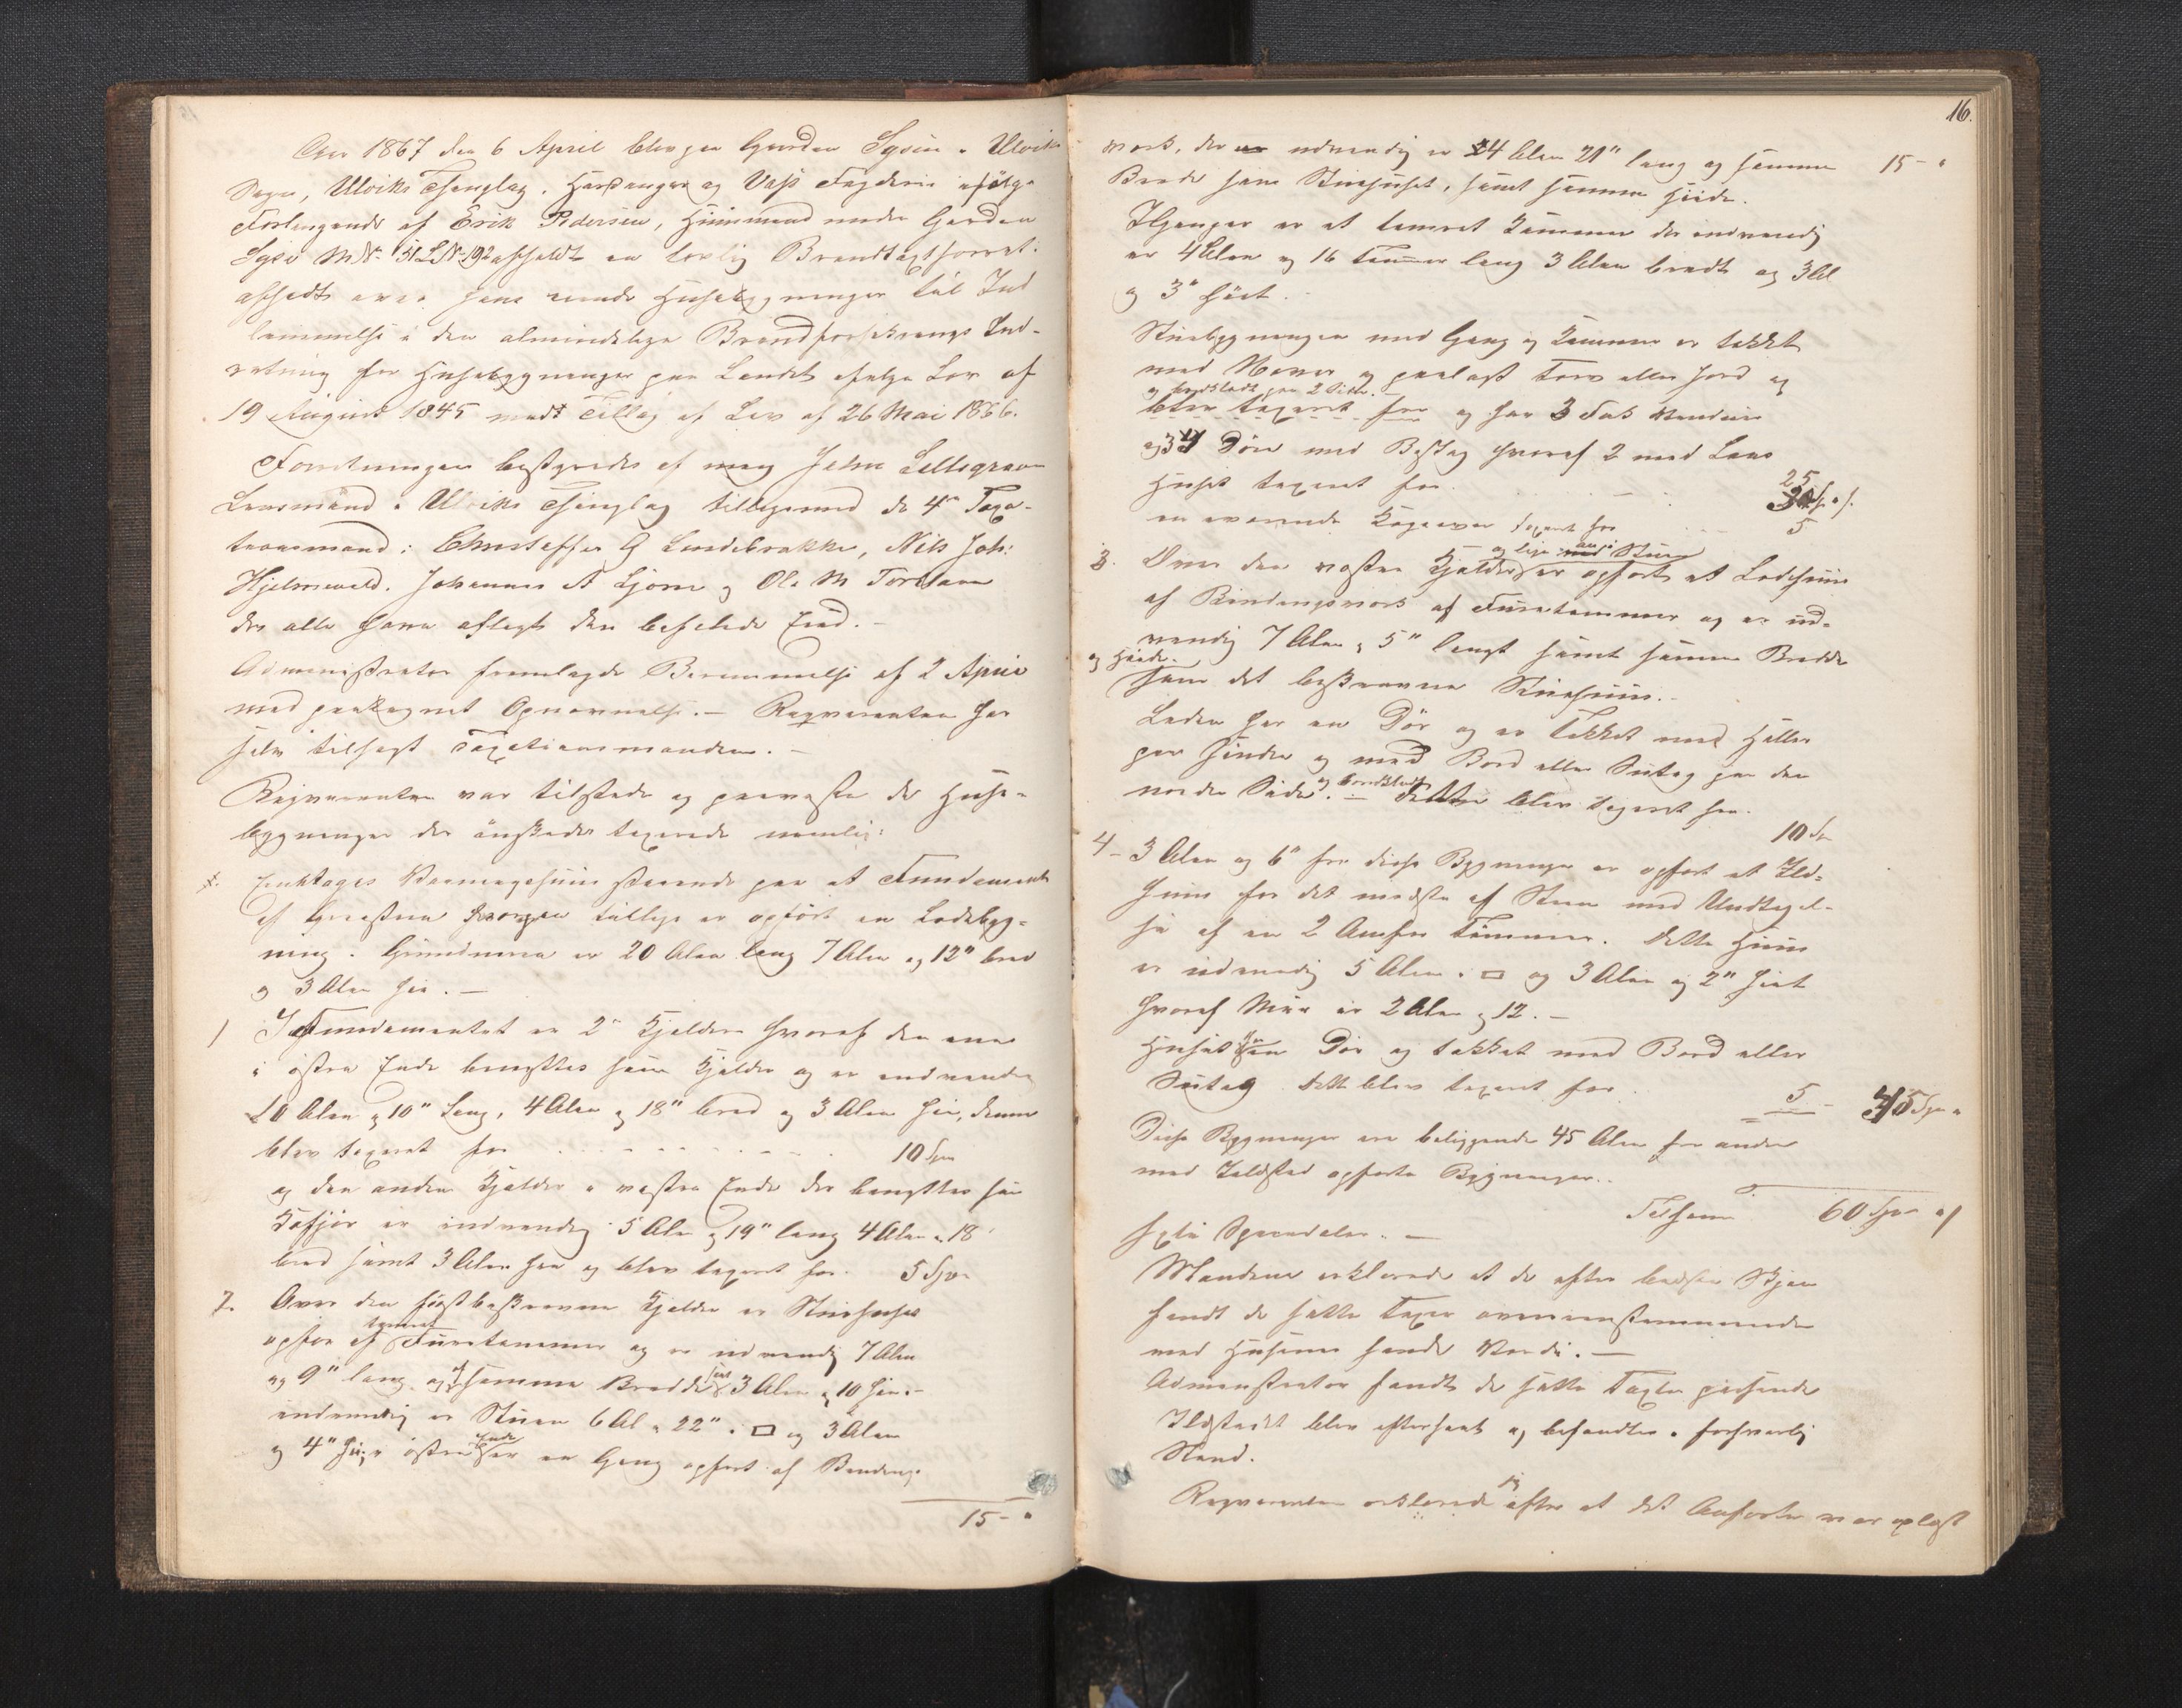 Aar 1867 den 6 April blev paa Gaarden Sysen i Ulviks
Sogn, Ulviks Thinglag, Hardanger og Voss Fogderie ifølge
Forlangende af Erik Pedersen, Huusmand under Gaarden
Syse M No 51 L No 192 afholdt en lovlig Brandtaxtforret-
afholdt over hans eiende Husebygninger til Ind
lemmelse i den almindelige Brandforsikrings Ind-
retning for Husebygninger paa Landet ifølge Lov af
19 August 1845 med Tillæg af Lov af 26 Mai 1866.
Forretningen bestyredes af mig John Lillegraven
Lensmand i Ulviks Thinglag tilligemed de 4re Taxa-
tionsmænd: Christoffer G Lindebrække, Nils Joh:
Hjelmevold, Johannes A Ljone og Ole M Torblaa
der alle have aflagt den befalede Eed. –
Administrator fremlagde Berammelse af 2 April
med paategnet Opnævnelse. – Reqvirenten har
selv tilsagt Taxationsmændene. –
Reqvirenten var tilstede og paaviste de Huse-
bygninger der önskedes taxerede nemlig:
1. Eenetages Vaaningshuus staaende paa et Fundament
af Graasteen hvorpaa tillige er opfört en Ladebyg-
ning. Grundmuren er 20 Alen lang 7 Alen og 12" bred
og 3 Alen höi. –
1 I Fundamentet er 2de Kjeldere hvoraf den ene
i östre Ende benyttes som Kjelder og er indvendig
10 Alen og 10" lang, 4 Alen og 18" bred og 3 Alen höi, denne
blev taxeret for . . . . . . . 10 Spd
og den anden Kjelder i vestre Ende der benyttes som
Kofjös er indvendig 5 Alen og 19" lang 4 Alen og 18"
bred samt 3 Alen höi og blev taxeret for. 5 Spd
2. Over den förstbeskrevne Kjelder er Stuehuset
opfört af tömret Furretømmer og er udvendig 7 Alen
og 9" lang og af samme Bredde samt 3 Alen og 10 höi. –
indvendig er Stuen 6 Al og 22" i □ og 3 Alen
og 4" höi, i östre Ende er en Gang opført af Bindings
15 – "
16.
værk, der udvendig er 4 Alen 21" lang og samme 15 – "
Brede som Stuehuset, samt samme Höide.
I Gangen er et tömret Kammer der indvendig
er 4 Alen og 16 Tommer lang 3 Alen bredt og 3 Al
og 3" höit.
Stuebygningen med Gang og Kammer er tækket
med Næver og paalagt Torv eller Jord og
og bordklædt paa 2 Sider.
blev taxeret for og har 3 Fak Vinduer
og 4 Döre med Beslag hvoraf 2 med Laas
Huset taxeret for . . . 25 Sp "
en værende Kogeovn taxeret for . . . 5
3. Over den vestre Kjelder og lige an i Stuen er opført et Ladehuus
af Bindingsværk af Furretømmer og er ud-
vendig 7 Alen og 5" langt samt samme Bredde
og Höide
som det beskrevne Stuehuus. –
Laden har en Dör og er tækket med Heller
paa söndre og med Bord eller Sutag paa den
nordre Side og bordklædt. – Dette blev taxeret for.
10 Sp
4 – 3 Alen og 6" fra disse Bygninger er opført et Ild-
huus for det meste af Steen med Undtagel-
se af en 2 Omfar Tømmer. Dette Huus
er udvendig 5 Alen i □ og 3 Alen og 2" höit
hvoraf Muur er 2 Alen og 12. –
Huset har en Dör og tækket med Bord eller
Sutag. Dette blev taxeret for . . 5 45 Spd "
Disse Bygninger ere beliggende 45 Alen fra andre
med Ildsted opførte Bygninger.
Tilsam 60 Spd "
sexti Speciedaler. –
Mændene erklærede at de efter bedste Skjøn
fandt de satte Taxer overeenstemmende
med Husenes sande Værdi. –
Administrator fandt de satte Taxter passende
Ildstedet blev efterseet og befandtes i forsvarlig
Stand.
Reqvirenten erklærede sig efter at det Anførte var oplæst